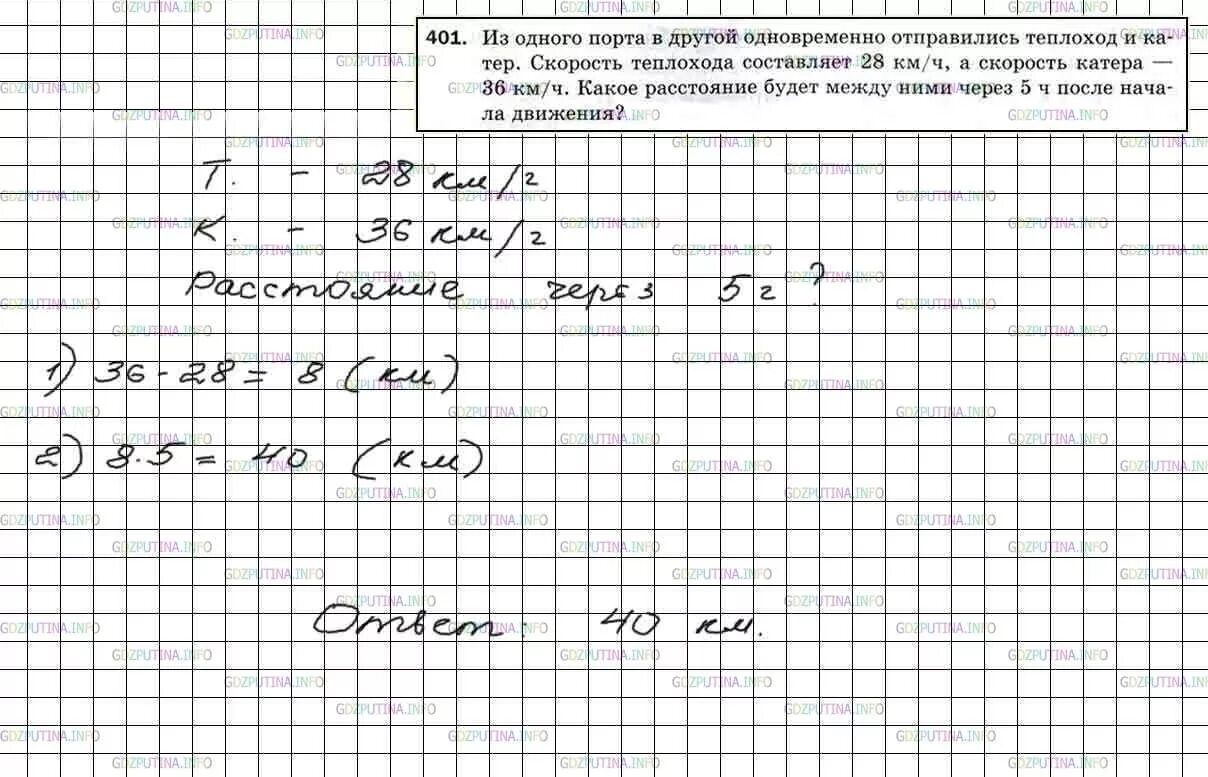 401. Из одного порта в другой одновременно отправились теплоход и ка-
тер. Скорость теплохода составляет 28 км/ч, а скорость катера —
36 км/ч. Какое расстояние будет между ними через 5 ч после нача-
ла движения?
Т. - 28 км/ч
К. - 36 км/ч
Расстояние через 5 ч ?
1) 36 - 28 = 8 (км)
2) 8 · 5 = 40 (км)
Ответ: 40 км.
GDZPUTINA.INFO